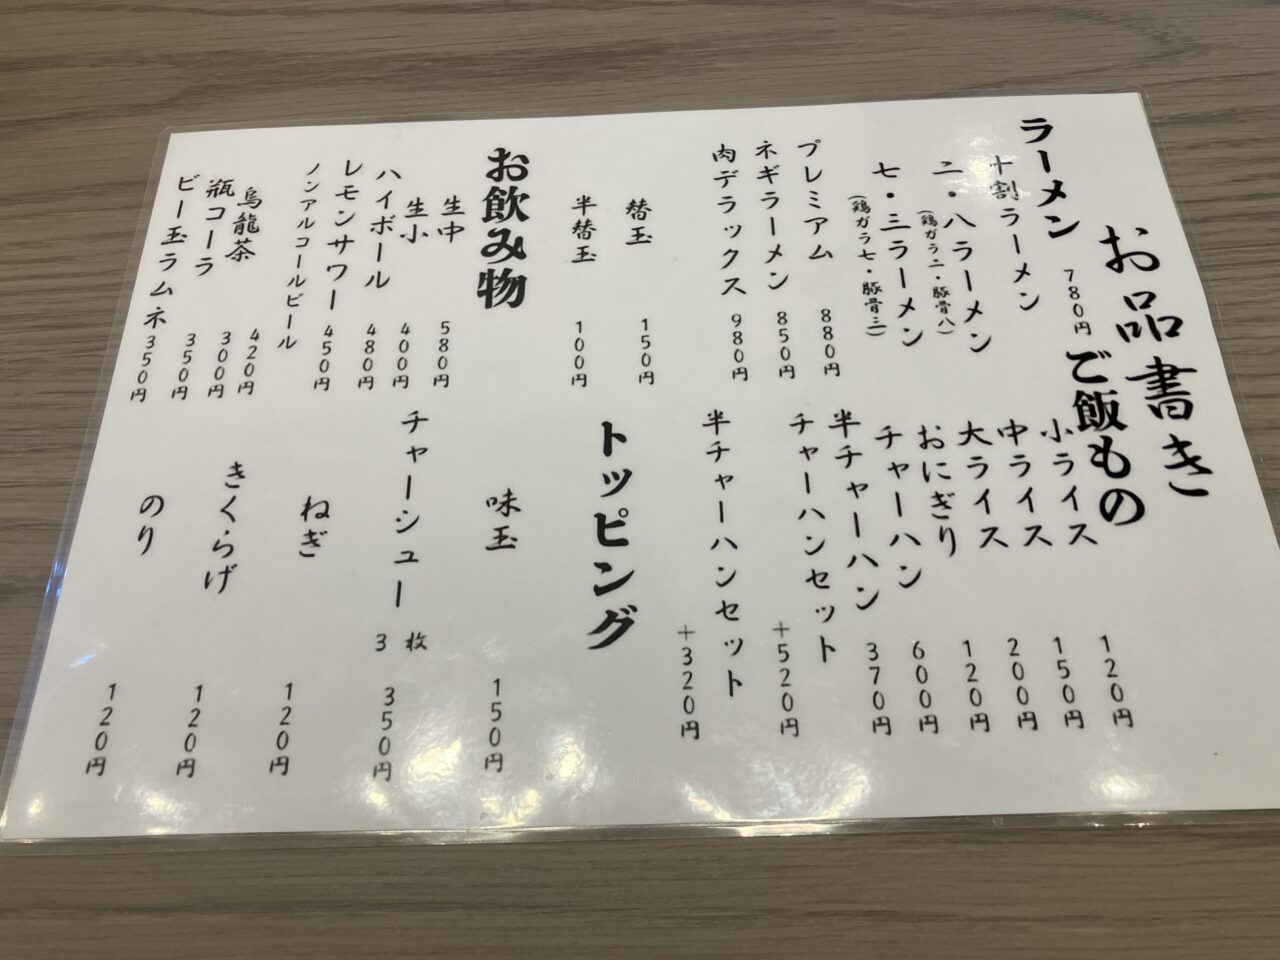 お品書き
ラーメン
780円
十割ラーメン
二・八ラーメン
(鶏ガラ二・豚骨八)
七・三ラーメン
(鶏ガラ七・豚骨三)
プレミアム 880円
ネギラーメン 850円
肉デラックス 980円
替玉 150円
半替玉 100円
お飲み物
生中 580円
生小 400円
ハイボール 480円
レモンサワー 450円
ノンアルコールビール 420円
烏龍茶 300円
瓶コーラ 350円
ビー玉ラムネ 350円
ご飯もの
小ライス 120円
中ライス 150円
大ライス 200円
おにぎり 120円
チャーハン 600円
半チャーハン 370円
チャーハンセット +520円
半チャーハンセット +320円
トッピング
味玉 150円
チャーシュー 3枚 350円
ねぎ 120円
きくらげ 120円
のり 120円